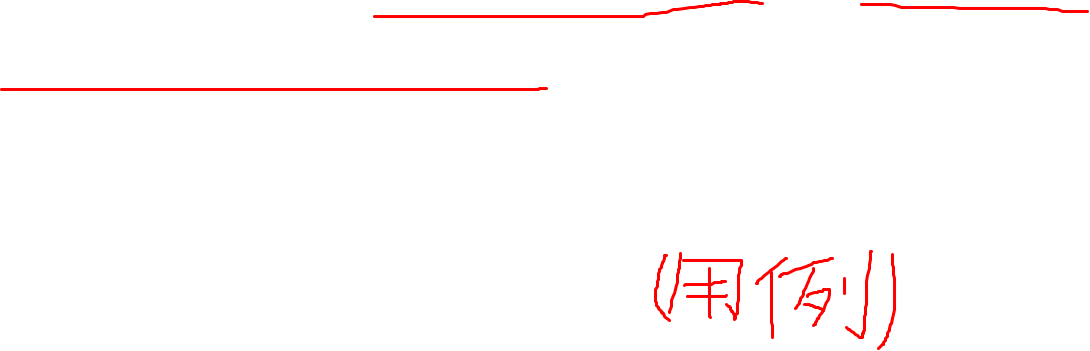 (用例)